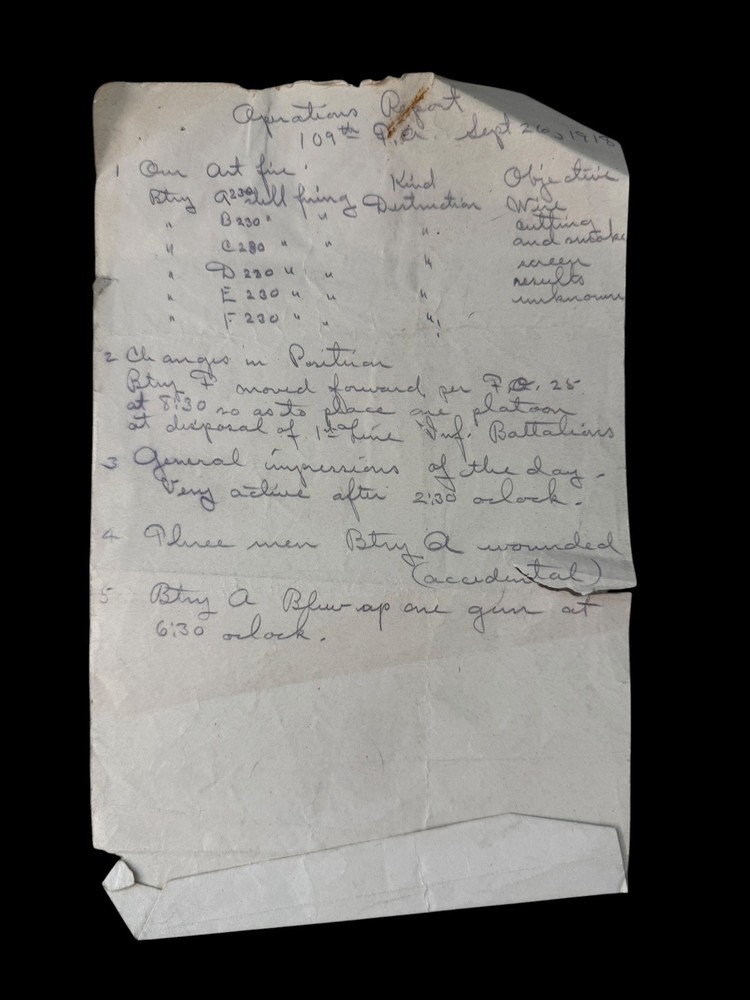 Operations Report
109th F.A. Sept 26, 1918
1 Our Art fire. Kind Objective
Btry A 230 still firing Destruction Wire
" B 230 " " " cutting
" C 230 " " and smoke
" D 230 " " " screen
results
" E 230 " " " unknown
" F 230 " " "
2 Changes in Position
Btry F moved forward per F.O. 25
at 8:30 so as to place one platoon
at disposal of 1st Line Inf. Battalions
3 General impressions of the day.
Very active after 2:30 oclock.
4 Three men Btry A wounded
(accidental)
5 Btry A Blew up one gun at
6:30 oclock.